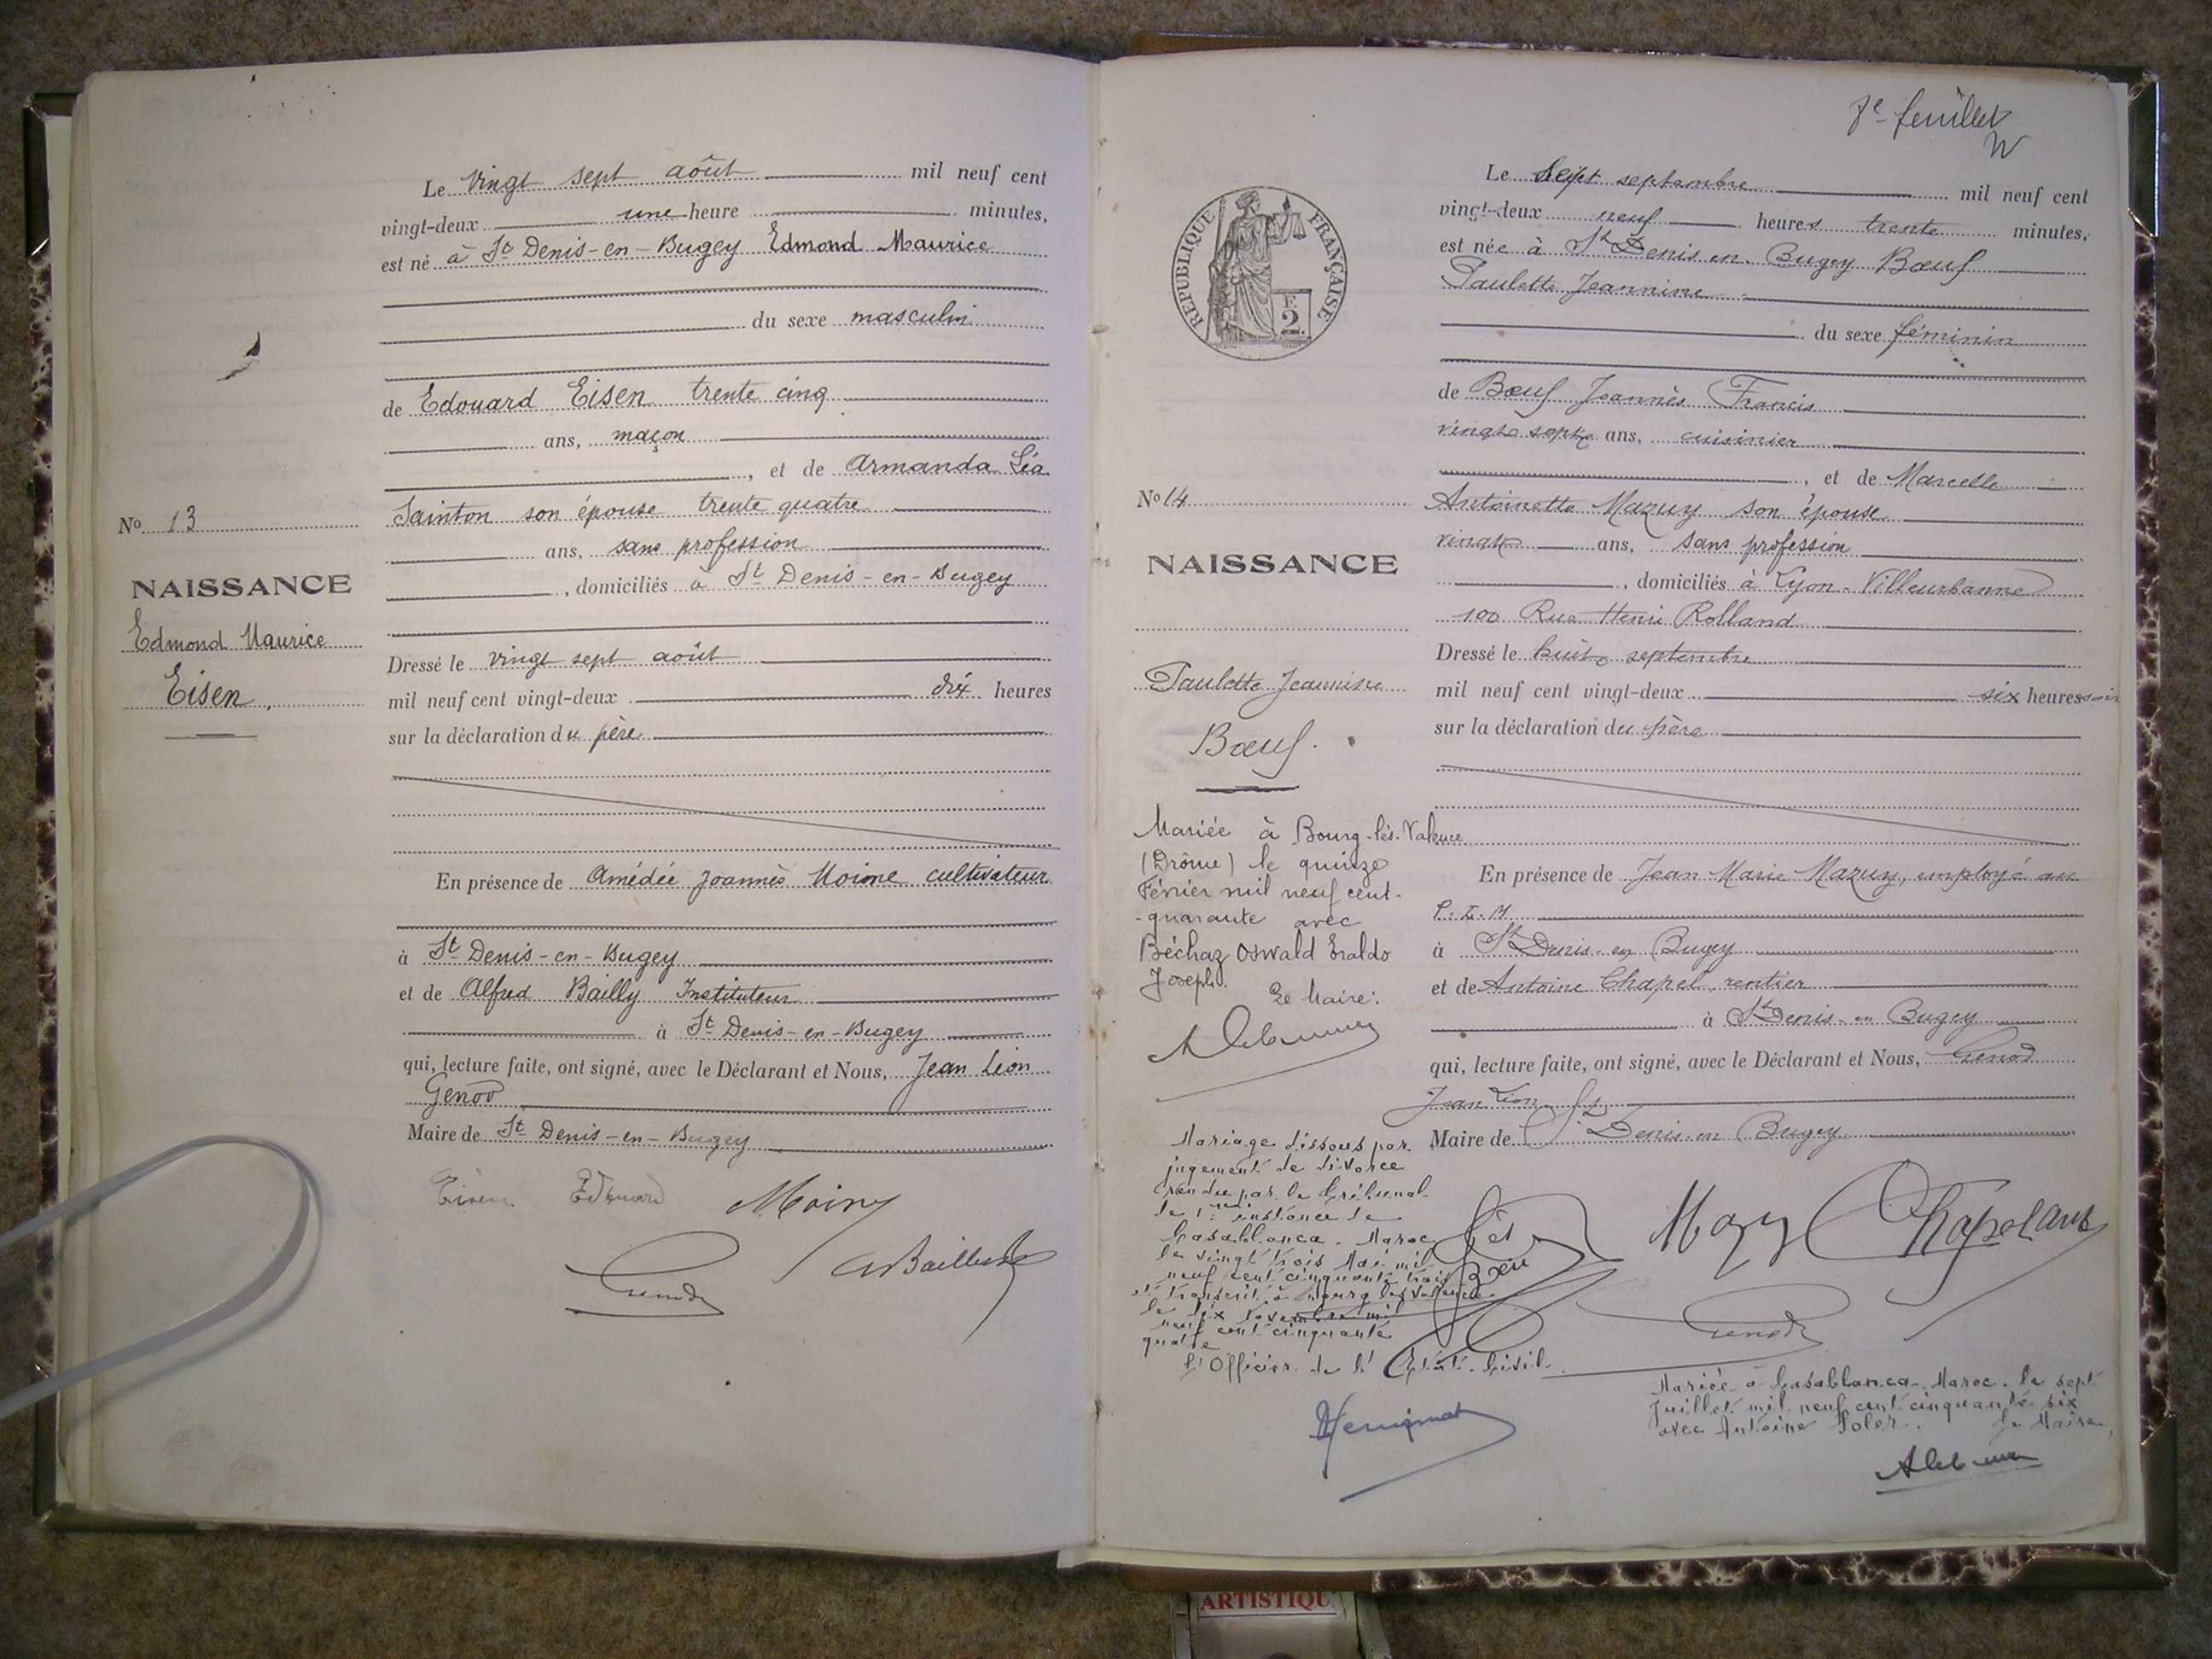 Le Vingt sept août mil neuf cent
vingt-deux une heure minutes,
est né à St Denis-en-Bugey Edmond Maurice
du sexe masculin
de Edouard Eisen trente cinq
ans, maçon
, et de Armanda Léa
Sainton son épouse trente quatre
ans, sans profession
, domiciliés à St Denis-en-Bugey
Dressé le vingt sept août
mil neuf cent vingt-deux dix heures
sur la déclaration du père
En présence de Amédée Joannès Moine cultivateur
à St Denis-en-Bugey
et de Alfred Bailly Instituteur
à St Denis-en-Bugey
qui, lecture faite, ont signé, avec le Déclarant et Nous, Jean Léon
Genod
Maire de St Denis-en-Bugey
Edouard
Genod
No 13
NAISSANCE
Edmond Maurice
Eisen
7e feuillet
RÉPUBLIQUE FRANÇAISE
F.
2
Le Sept septembre mil neuf cent
vingt-deux neuf heures trente minutes,
est née à St Denis en Bugey Bœuf
Paulette Jeannine
du sexe féminin
de Bœuf Joannès Francis
vingt sept ans, cuisinier
, et de Marcelle
Antoinette Mazuy son épouse
vingt ans, sans profession
, domiciliés à Lyon-Villeurbanne
100 Rue Henri Rolland
Dressé le huit septembre
mil neuf cent vingt-deux six heures soir
sur la déclaration du père
En présence de Jean Marie Mazuy, employé au
P.L.M
à St Denis-en Bugey
et de Antoine Chapel, rentier
à St Denis-en Bugey
qui, lecture faite, ont signé, avec le Déclarant et Nous, Genod
Jean Léon
Maire de St Denis-en Bugey
Genod
No 14
NAISSANCE
Paulette Jeannine
Bœuf.
Mariée à Bourg-lès-Valence
(Drôme) le quinze
Février mil neuf cent-
-quarante avec
Béchaz Oswald Eraldo
Joseph.
Le Maire:
Mariage dissous par
jugement de divorce
rendu par le Tribunal
de 1ère instance de
Casablanca. Maroc
le vingt trois Mai mil
neuf cent cinquante trois
et transcrit à Bourg les Valence
le dix Novembre mil
neuf cent cinquante
quatre
L'Officier de l'Etat-Civil.
Mariée à Casablanca. Maroc. le sept
Juillet mil neuf cent cinquante six
avec Antoine Soler. Le Maire,
ARTISTIQU